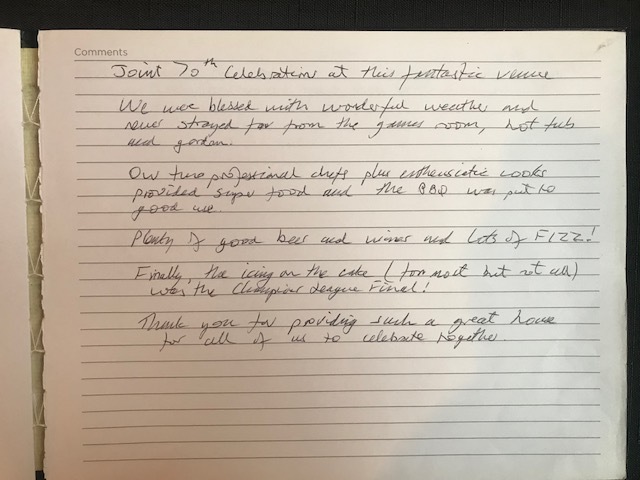 Comments
Joint 70th Celebration at this fantastic venue
We were blessed with wonderful weather and
never strayed far from the games room, hot tub
and garden.
Our two professional chefs plus enthusiastic cooks
provided super food and the BBQ was put to
good use.
Plenty of good beer and wines and lots of FIZZ!
Finally, the icing on the cake (for most but not all)
was the Champions League Final!
Thank you for providing such a great house
for all of us to celebrate together.